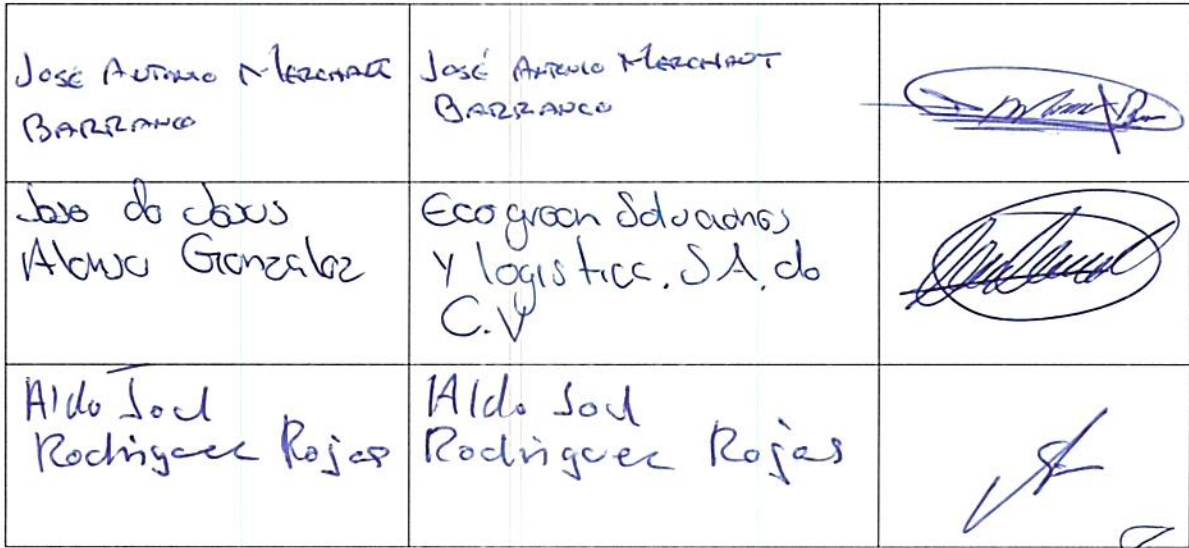 JOSÉ ANTONIO MERCHANT
BARRANCO
JOSÉ ANTONIO MERCHANT
BARRANCO
Jose de Jesus
Alonso Gonzalez
Ecogreen Soluciones
y logistica, SA, de
C.V
Aldo Joel
Rodriguez Rojas
Aldo Joel
Rodriguez Rojas